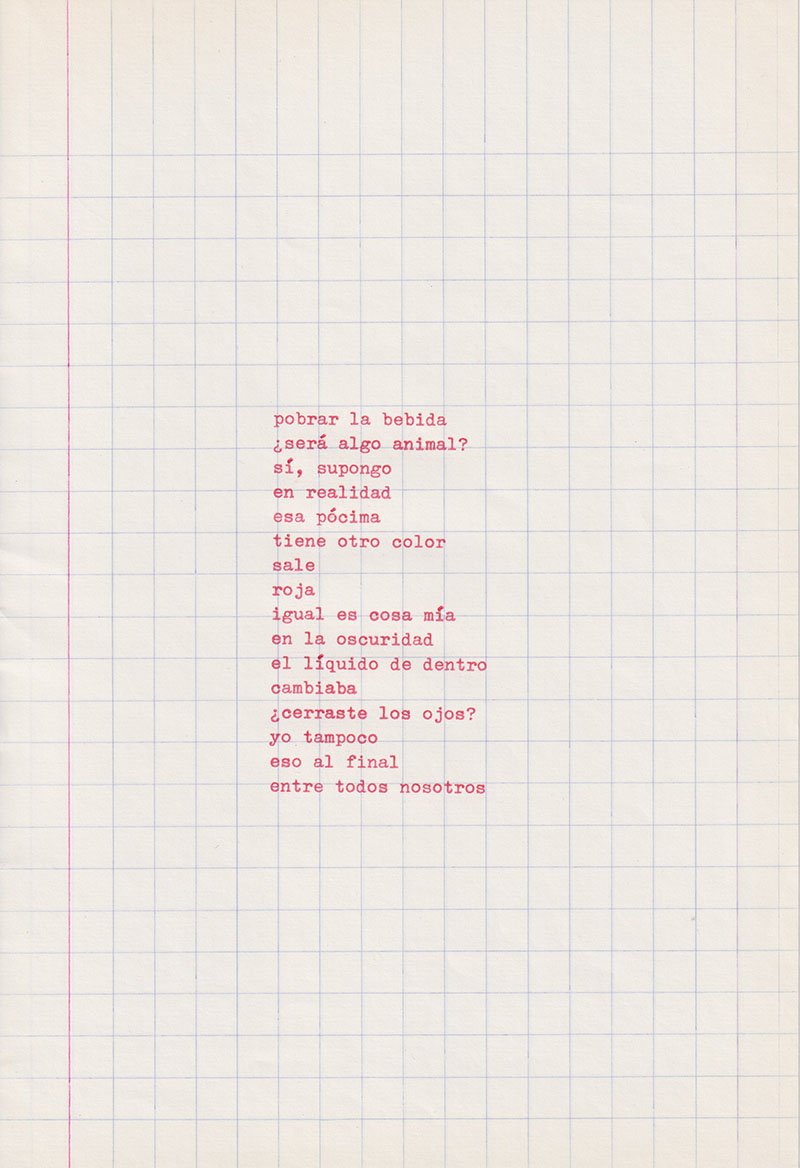 pobrar la bebida
¿será algo animal?
sí, supongo
en realidad
esa pócima
tiene otro color
sale
roja
igual es cosa mía
en la oscuridad
el líquido de dentro
cambiaba
¿cerraste los ojos?
yo tampoco
eso al final
entre todos nosotros